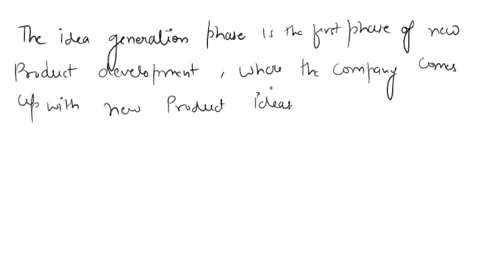 The idea generation phase is the first phase of new
Product development, where the company comes
up with new Product ideas